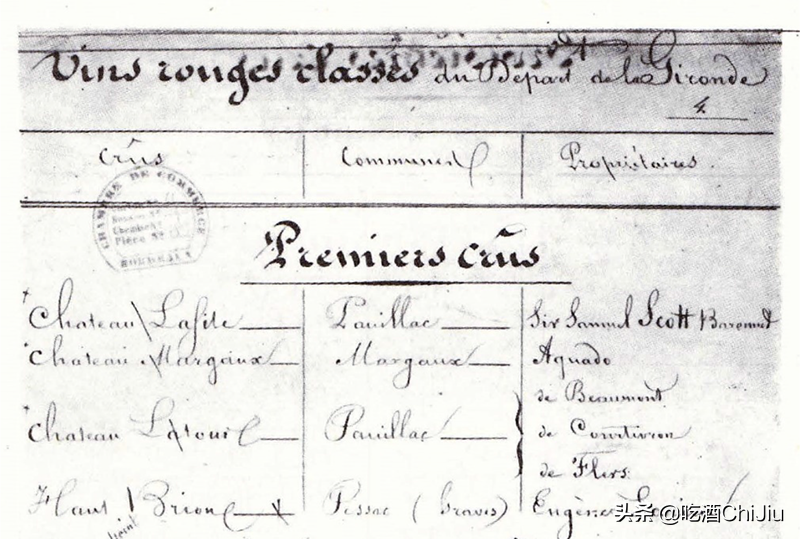 Vins rouges classés du Départ de la Gironde
4.
Crûs Communes Propriétaires.
CHAMBRE DE COMMERCE
BORDEAUX
Premiers crûs
Chateau Lafite Pauillac Sir Samuel Scott Baronnet
Chateau Margaux Margaux Aguado
de Beaumont
Chateau Latour Pauillac de Courtivron
de Flers
Haut Brion Pessac (Graves) Eugène
头条 @吃酒ChiJiu